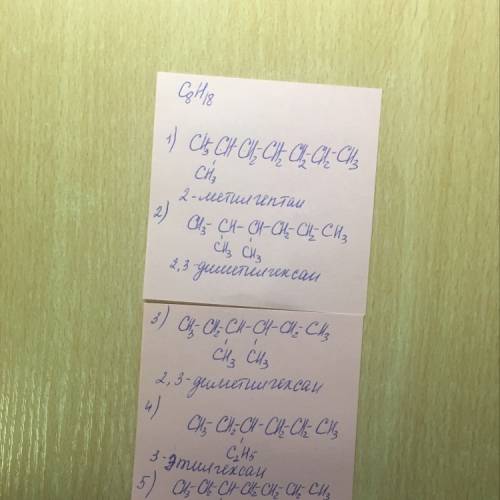 C8H18
1) CH3-CH-CH2-CH2-CH2-CH2-CH3
CH3
2-метилгептан
2) CH3-CH-CH-CH2-CH2-CH3
CH3 CH3
2,3-диметилгексан
3) CH3-CH2-CH-CH-CH2-CH3
CH3 CH3
2,3-диметилгексан
4)
CH3-CH2-CH-CH2-CH2-CH3
C2H5
3-этилгексан
5) CH3-CH2-CH-CH2-CH2-CH2-CH3